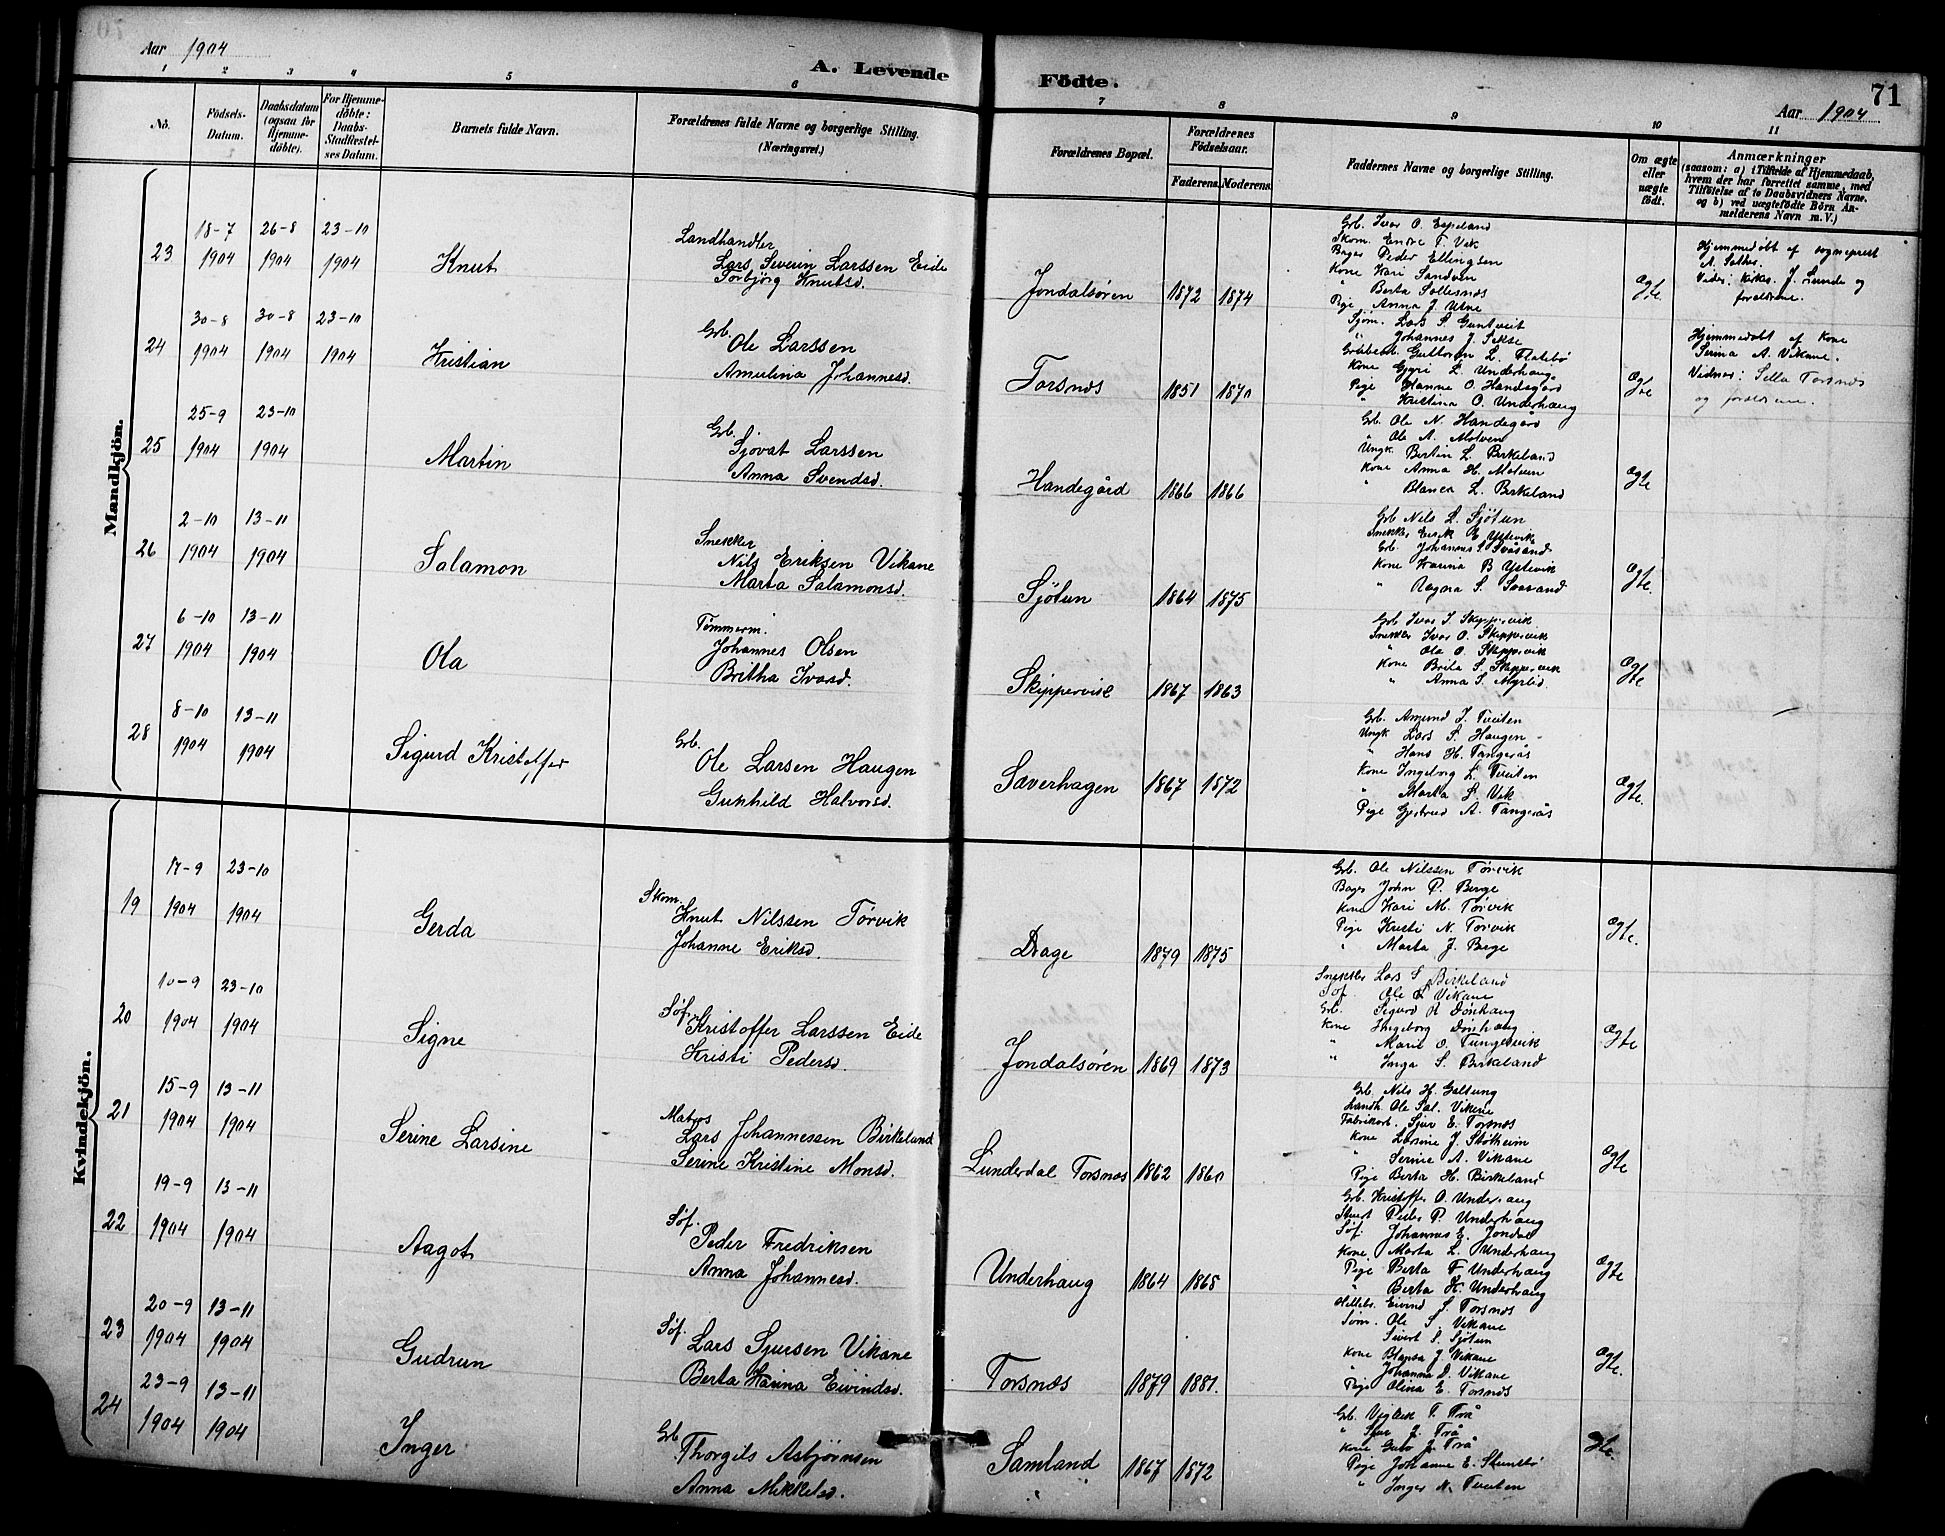 Aar 1904
A. Levende Födte.
71
Aar 1904
1 2 3 4 5 6 7 8 9 10 11
No.
Födsels-Datum.
Daabsdatum (ogsaa for Hjemme-döbte).
For Hjemme-döbte: Daabs-Stadfæstel-ses Datum.
Barnets fulde Navn.
Forældrenes fulde Navne og borgerlige Stilling. (Næringsvei.)
Forældrenes Bopæl.
Forældrenes Födselsaar.
Faderens. Moderens.
Faddernes Navne og borgerlige Stilling.
Om ægte eller uægte födt.
Anmærkninger
(saasom: a) i Tilfælde af Hjemmedaab, hvem der har forrettet samme, med Tilföielse af to Daabsvidners Navne, og b) ved uægtefödte Börn An-melderens Navn m.V.)
Mandkjön.
23
18-7 1904
26-8 1904
23-10 1904
Knut
Landhandler
Lars Severin Larssen Eide
Torbjörg Knutsd.
Jondalsøren
1872 1874
Grb. Ivar O. Espeland
Skom. Endre T. Vik
Bager Peder Ellingsen
Kone Kari Sandven
" Berta Sollesnes
Pige Anna J. Utne
Ægte.
Hjemmedøbt af sogneprest
A. Sather.
Vidner: Kirkes. J. Lunde og
forældrene.
24
30-8 1904
30-8 1904
23-10 1904
Kristian
Grb.
Ole Larssen
Amulina Johannesd.
Torsnæs
1851 1870
Sjøm. Lars S. Guntveit
" Johannes J. Sekse
Guttorm L. Flatebø
Kone Gyri L. Underhaug
Pige Hanne O. Handegård
" Kristina O. Underhaug
Ægte
Hjemmedøbt af Kone
Serina A. Vikane.
Vidner: Sella Torsnæs
og forældrene.
25
25-9 1904
23-10 1904
Martin
Grb.
Sjovat Larssen
Anna Svendsd.
Handegård
1866 1866
Grb. Ole N. Handegård
" Ole A. Molven
Ungk. Bertin L. Birkeland
Kone Anna H. Molven
" Blanca L. Birkeland
Ægte
26
2-10 1904
13-11 1904
Salamon
Snekker
Nils Eriksen Vikane
Marta Salamonsd.
Sjötun
1864 1875
Grb Nils L. Sjøtun
Snekker Eirik E Ystevik
Grb. Johannes S. Svåsand
Kone Hanna B Ystevik
" Ragna S. Svåsand
Ægte.
27
6-10 1904
13-11 1904
Ola
Tømmerm.
Johannes Olsen
Britha Ivarsd.
Skippervik
1867 1863
Grb Ivar I. Skippervik
Snekker Ivar O. Skippervik
" Ola O. Skippervik
Kone Brita S. Skippervik
" Anna S. Myrlid.
Ægte
28
8-10 1904
13-11 1904
Sigurd Kristoffer
Grb.
Ole Larsen Haugen
Gunhild Halvorsd.
Saverhagen
1867 1872
Grb. Amund J. Tveiten
Ungk Lars S. Haugen
" Hans H. Tangerås
Kone Ingeborg L. Tveiten
" Marta L. Vik
Pige Gjertrud A. Tangerås
Ægte.
Kvindekjön.
19
17-9 1904
23-10 1904
Gerda
Skom.
Knut Nilssen Tørvik
Johanne Eriksd.
Drage
1879 1875
Grb. Ole Nilssen Tørvik
Bager John P. Berge
Kone Kari M. Tørvik
Pige Kristi N. Tørvik
" Marta J. Berge
Ægte.
20
10-9 1904
23-10 1904
Signe
Søf.
Kristoffer Larssen Eide
Kristi Pedersd.
Jondalsøren
1869 1873
Snekker Lars S Birkeland
Søf. Ole S Vikane
Grb. Sigurd R Dönhaug
Kone Ingeborg Dönhaug
" Marie O. Tungesvik
" Inga S. Birkeland
Ægte
21
15-9 1904
13-11 1904
Serine Larsine
Matros
Lars Johannessen Birkeland
Serine Kristine Monsd.
Lunderdal Torsnæs
1862 1860
Grb. Nils H. Galtung
Landh. Ole Sal. Vikane
Fabrikarb. Sjur E. Torsnæs
Kone Larsine J. Stötheim
" Serine A. Vikane
Pige Berta H. Birkeland
Ægte
22
19-9 1904
13-11 1904
Aagot
Søf.
Peder Fredriksen
Anna Johannesd.
Underhaug
1864 1865
Grb. Kristoffer O. Underhaug
Stuert Peder P. Underhaug
Søf. Johannes E. Jondal
Kone. Marta L. Underhaug
Pige Berta F Underhaug
" Berta K. Underhaug
Ægte
23
20-9 1904
13-11 1904
Gudrun
Søf.
Lars Sjursen Vikane
Berta Hanna Eivindsd.
Torsnæs
1879 1881.
Eivind S. Torsnæs
Søm. Ole S. Vikane
Sivert S. Sjøtun
Kone Blansa J. Vikane
" Johanna D. Vikane
Pige Olina E. Torsnæs
Ægte.
24
23-9 1904
13-11 1904
Inger
Grb
Thorgils Asbjørnsen
Anna Mikkelsd.
Samland
1867 1872
Grb. Vigleik T. Trå
" Sjur J. Trå
Kone Guro J. Trå
Pige Johanne E. Stunsbø
" Inger N. Tveiten